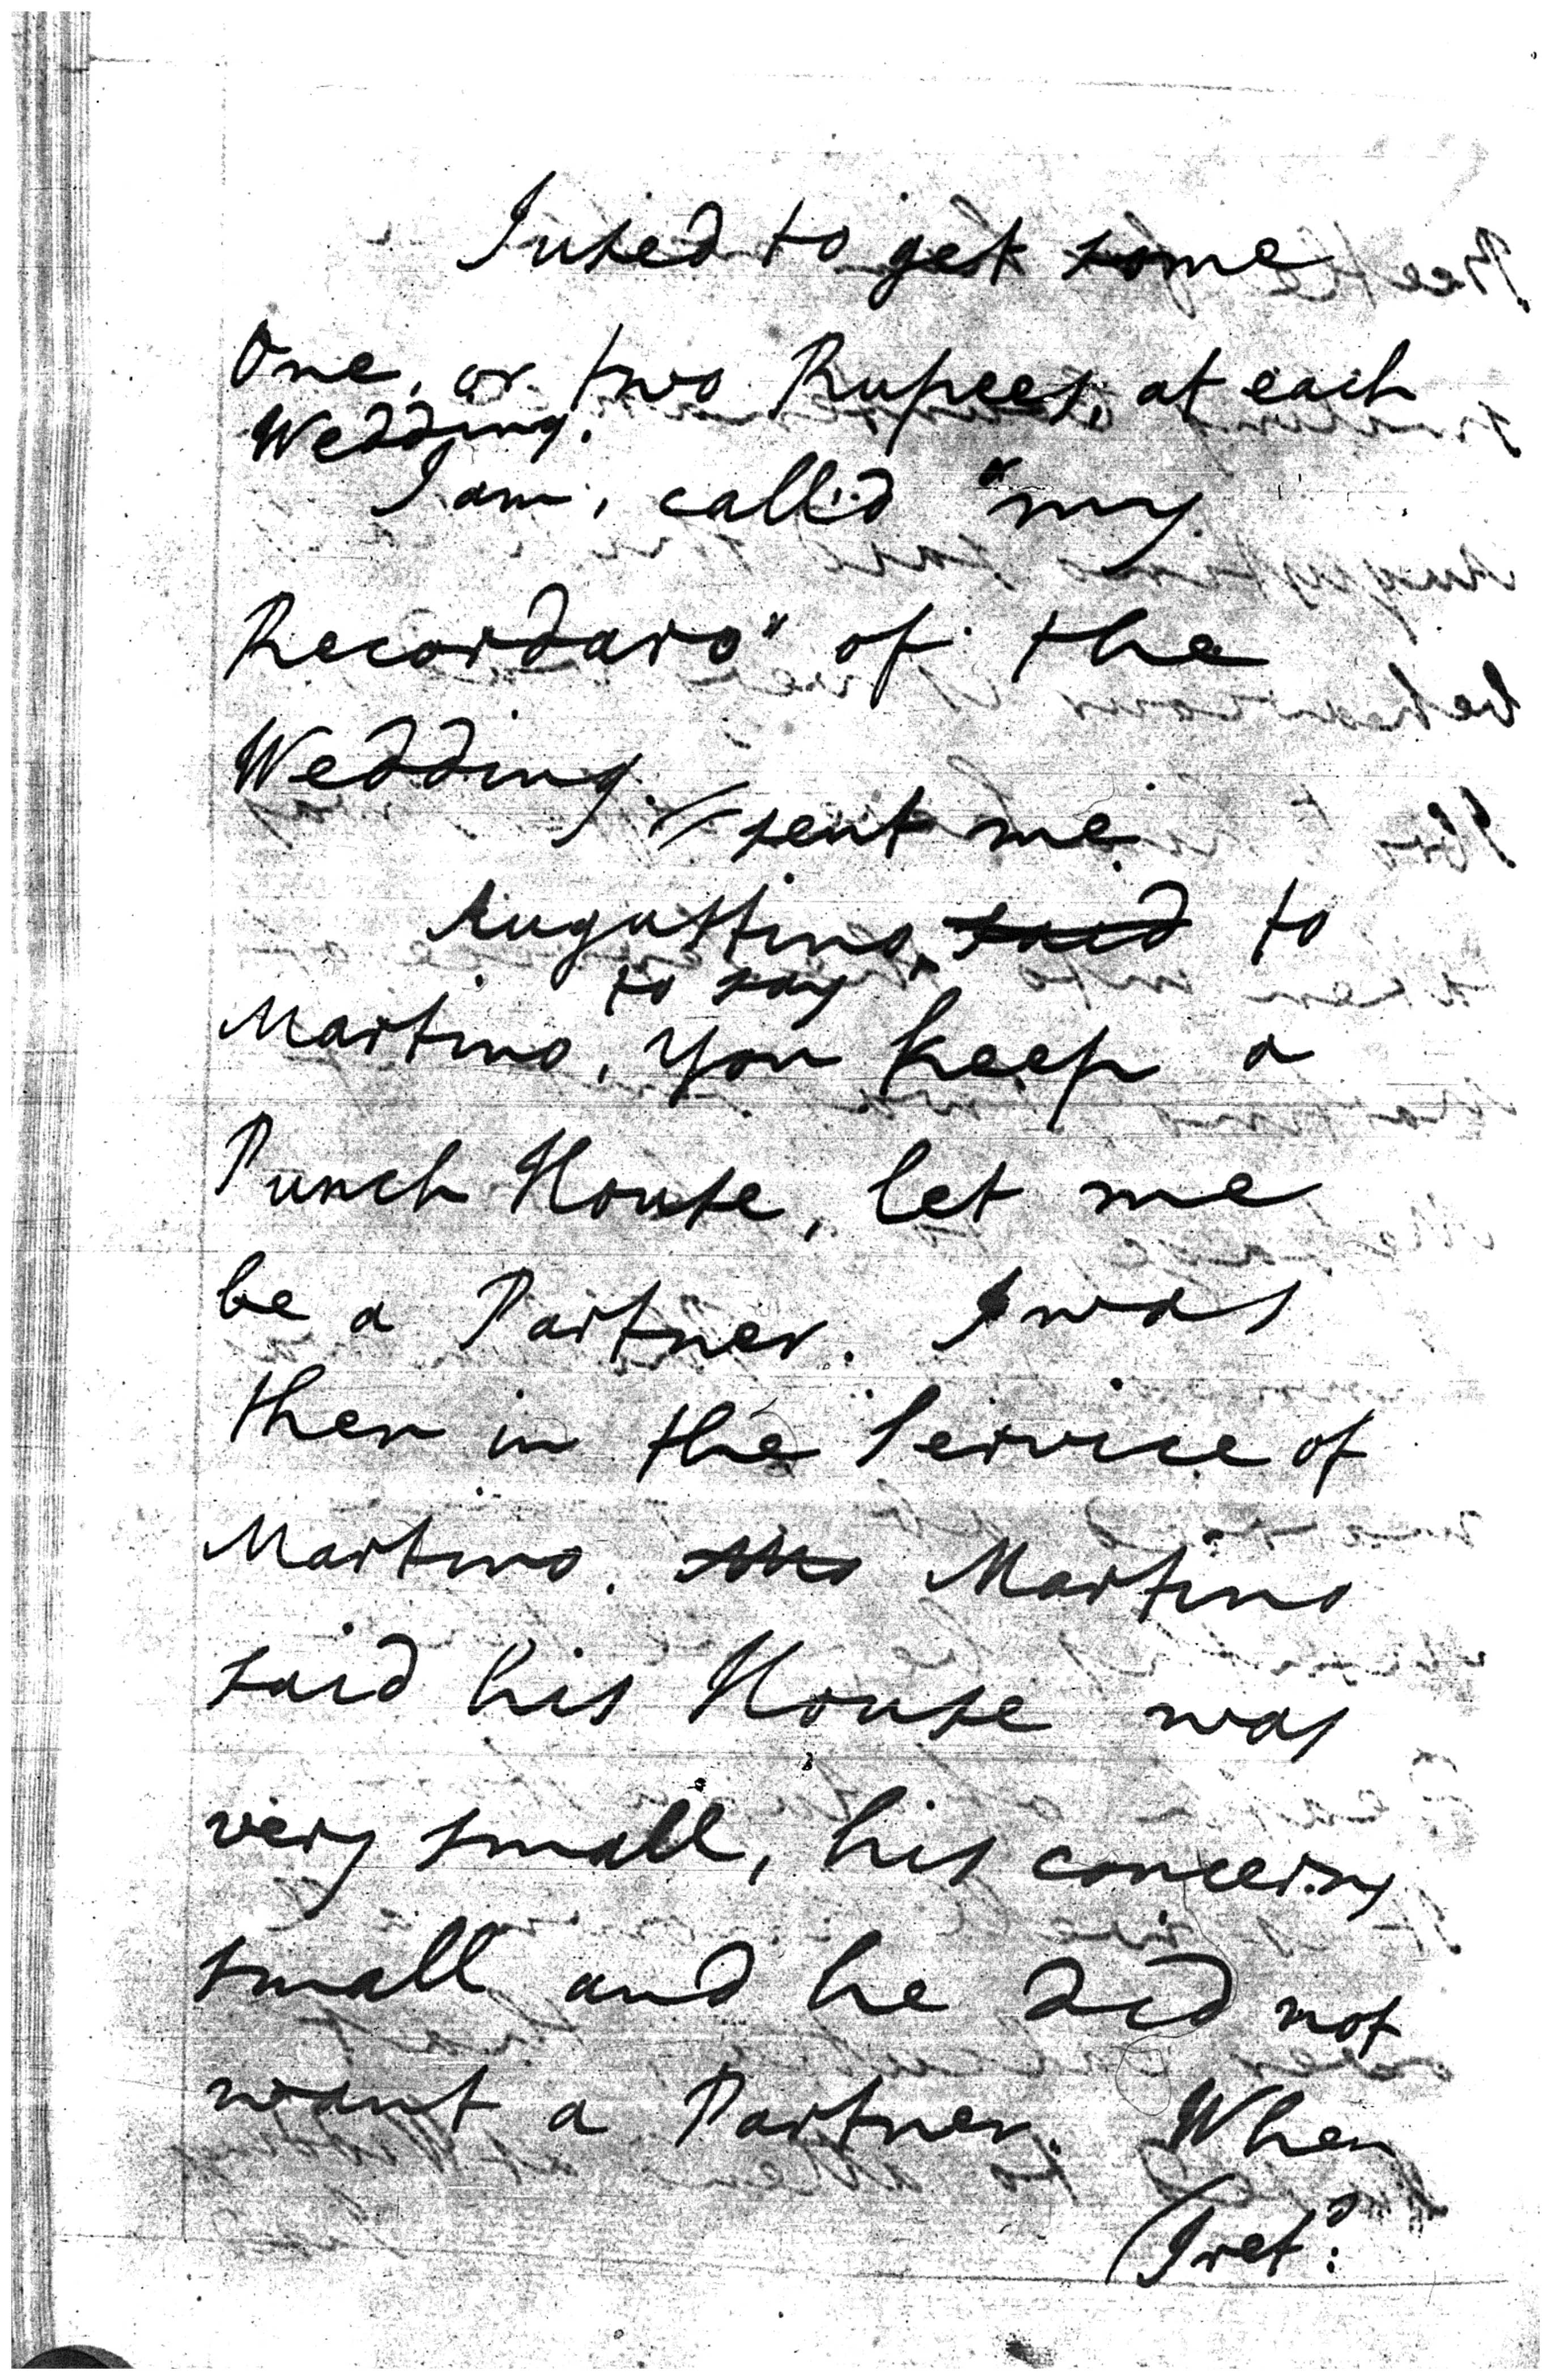 I used to get some
One, or two Rupees, at each
Wedding.
I am, call'd "my
Recordaro" of the
Wedding.
/sent me
Augustino, said to
to say
Martino, you keep a
Punch House, let me
be a Partner. I was
then in the Service of
Martino. Martino
said his House was
very small, his concerns
small and he did not
want a Partner. When
(I ret:d